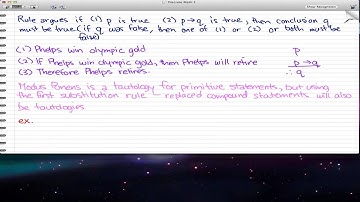 Discrete Math 1
Rule argues if (1) p is true (2) p→q is true, then conclusion q
must be true (if q was false, then one of (1) or (2) or both must be
false)
(1) Phelps win olympic gold p
(2) If Phelps win olympic gold, then Phelps will retire p→q
(3) Therefore Phelps retires. ∴ q
Modus Ponens is a tautology for primitive statements, but using
the first substitution rule – replaced compound statements will also
be tautologies
ex.